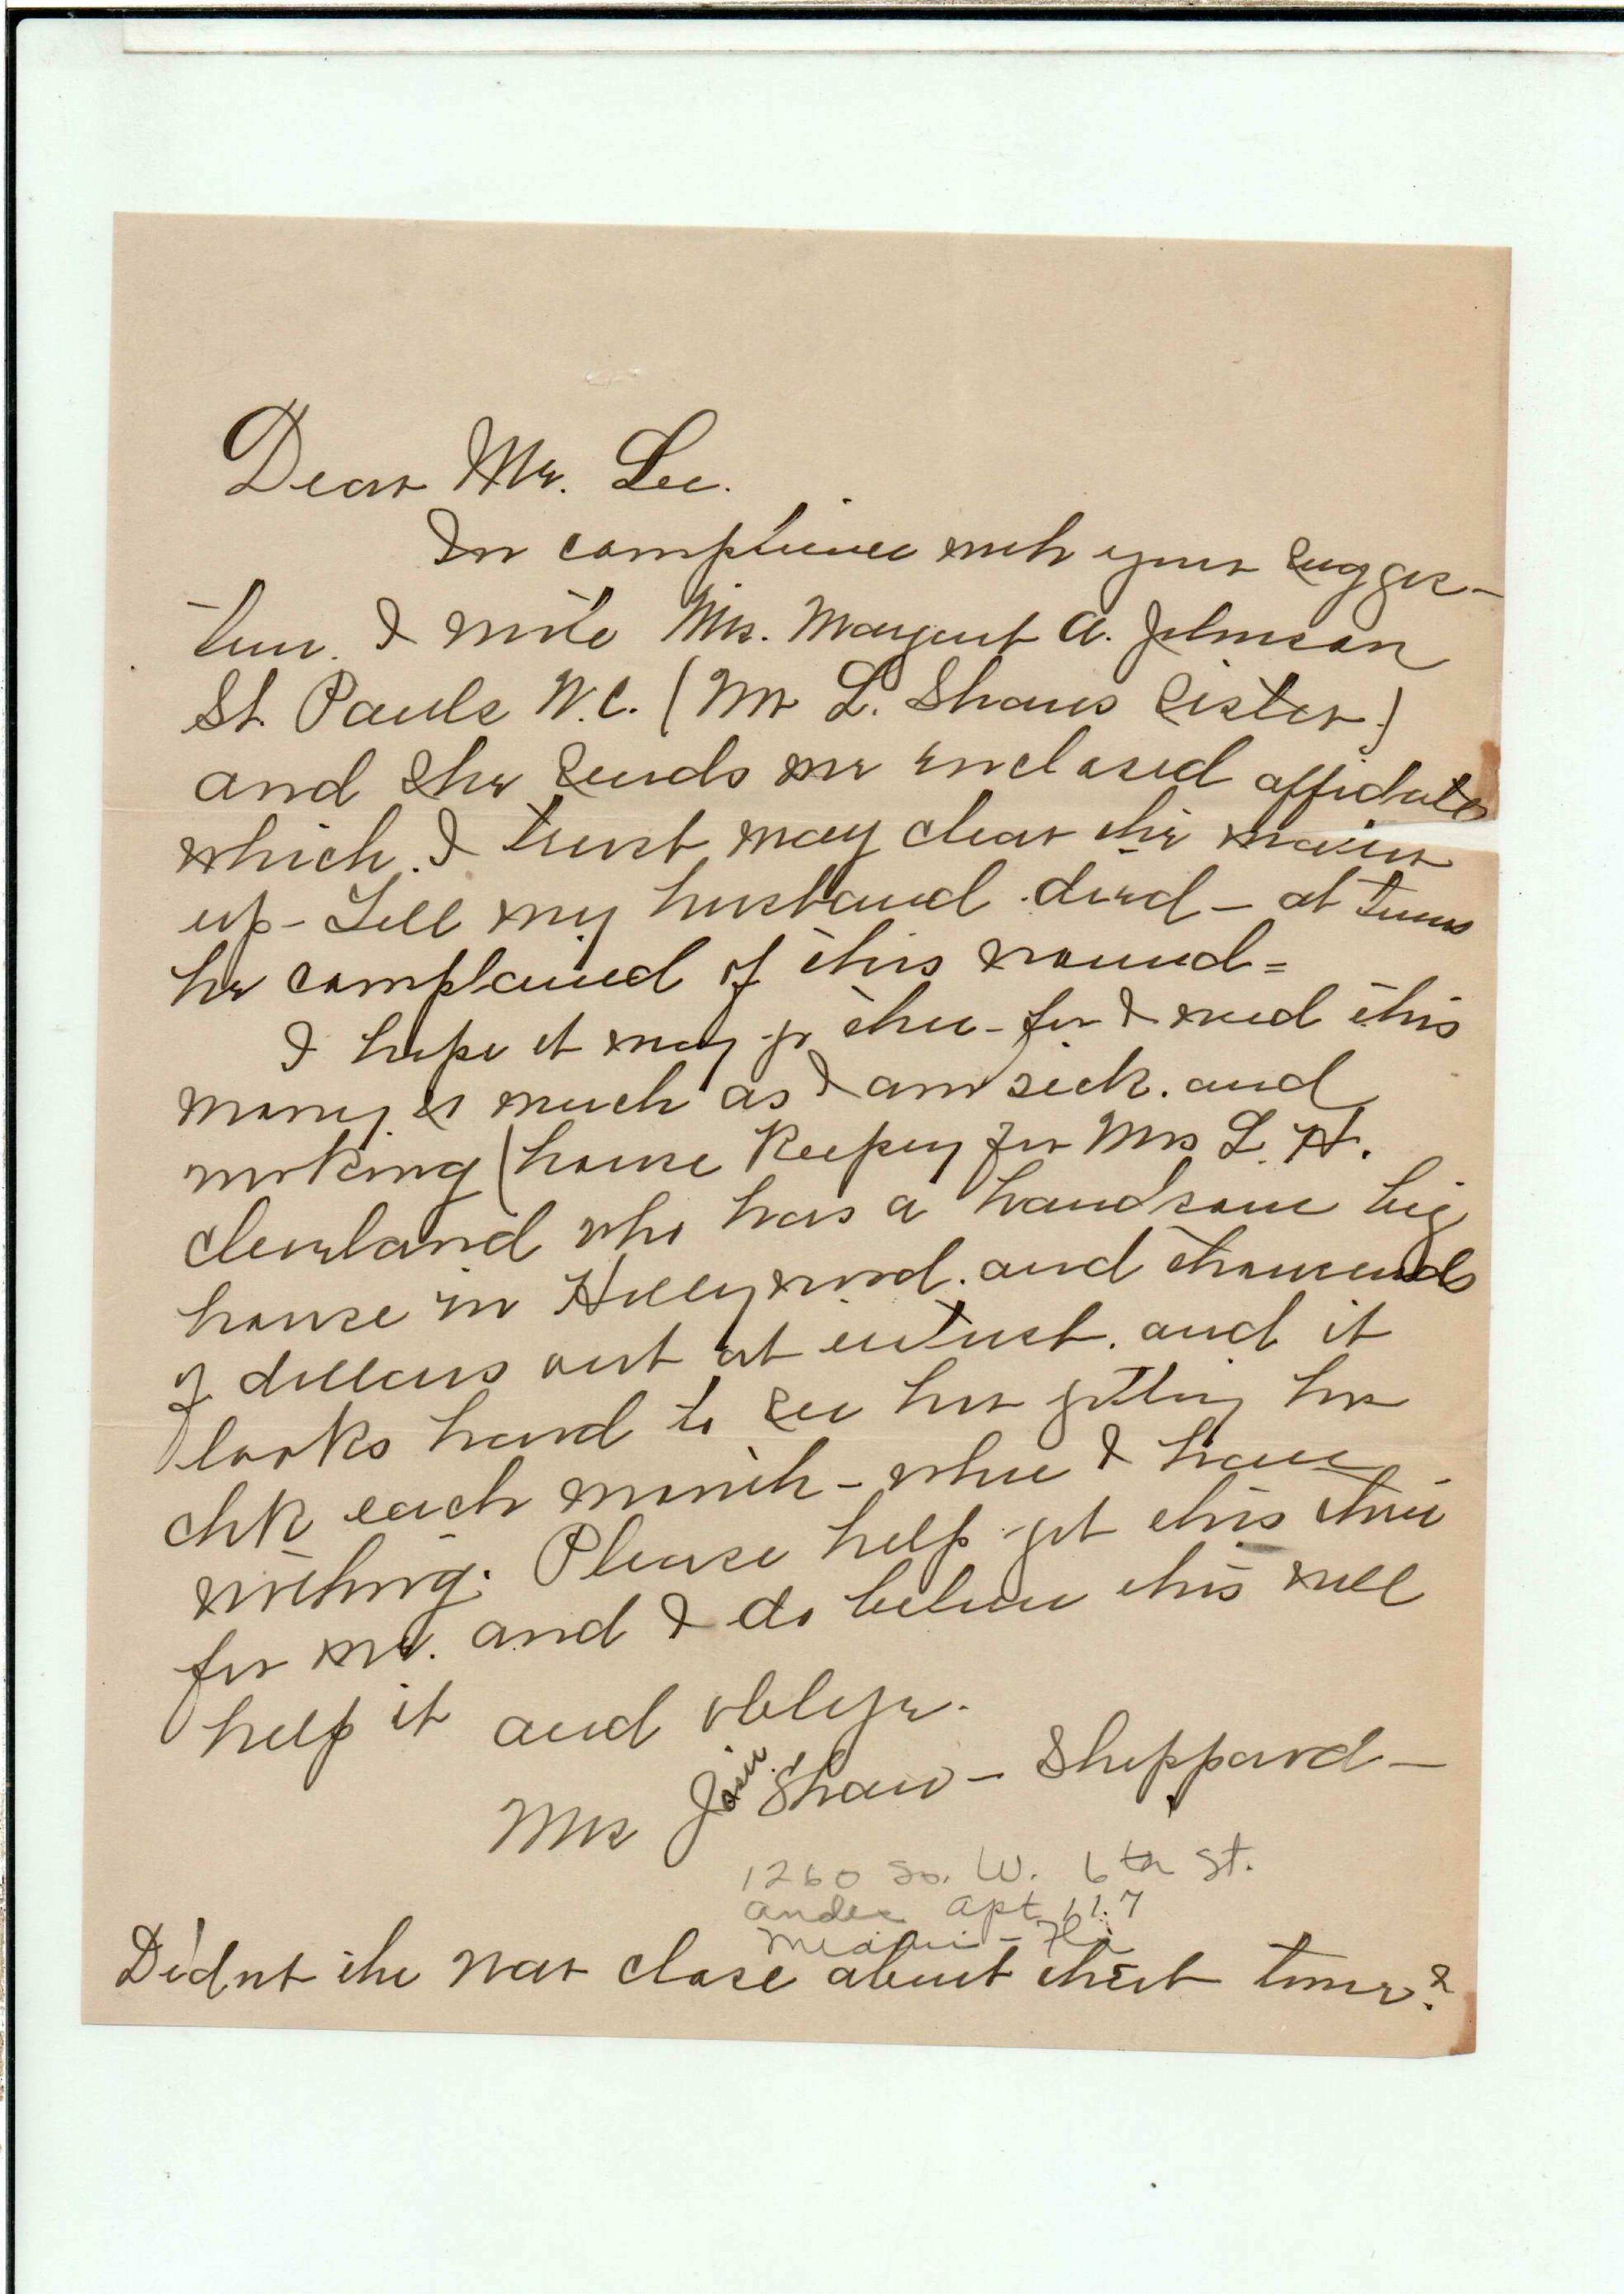 Dear Mr. Lee.
In complience with your sugges-
tion. I write Mrs. Margaret A. Johnson
St. Pauls N.C. (Mr L. Shaws Sister)
and she sends me enclosed affidate
which. I trust may clear the matter
up - Till my husband died - at times
he complained of this wound =
I hope it may go thru - for I need this
money so much as I am sick. and
working (house keeping for Mrs L. H.
Cleveland who has a handsome big
house in Hollywood. and thousands
of dollars out at intrest. and it
looks hard to see her getting her
chk each month - while I have
nothing. Please help get this thru
for me. and I do believe this will
help it and oblige.
Mrs Josie Shaw - Sheppard -
1260 So. W. 6th St.
Andes Apt 117
Miami - Fla
Didnt the war close about that time?